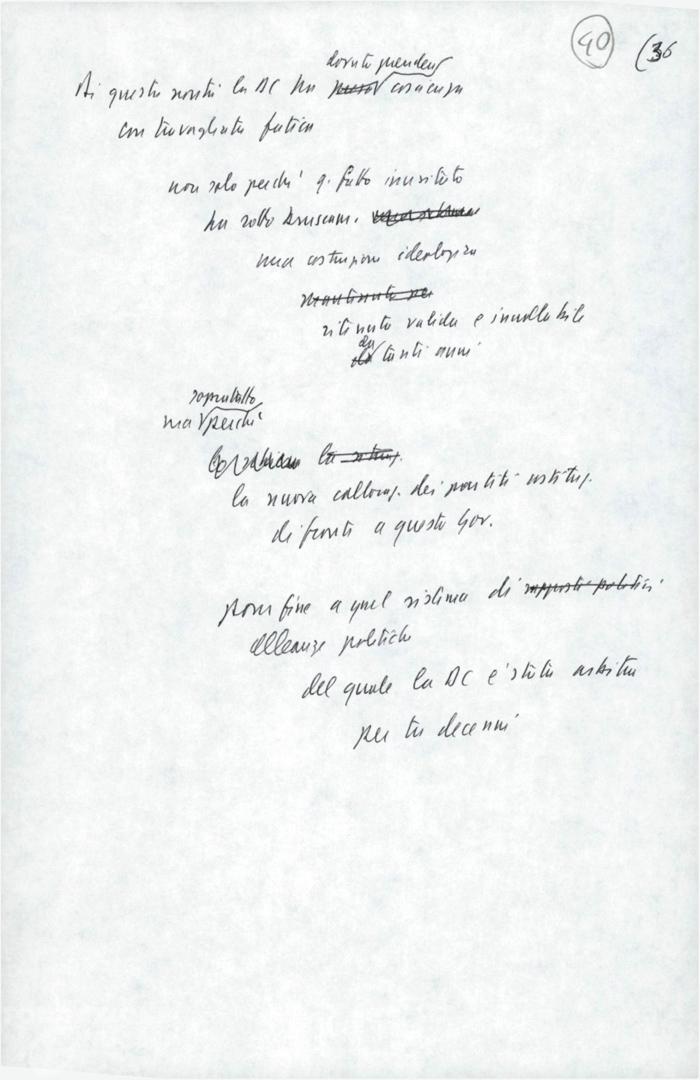 40 (36
dovuto prendere
Di questa novità la DC ha coscienza
con travagliata fatica
non solo perché q. fatto inusitato
ha rotto bruscam.
una costruzione ideologica
ritenuta valida e incrollabile
da tanti anni
soprattutto
ma perché
la
la nuova collocaz. dei partiti costituz.
di fronte a questo Gov.
pone fine a quel sistema di rapporti politici
alleanze politiche
del quale la DC è stata arbitra
per tre decenni